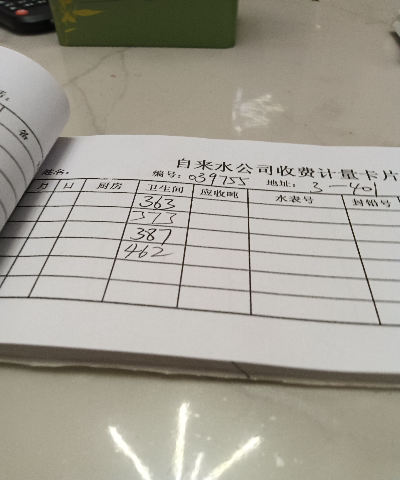 自来水公司收费计量卡片
姓名: 编号: 039755 地址: 3-401
月 日 厨房 卫生间 应收吨 水表号 封铅号
363
373
387
462